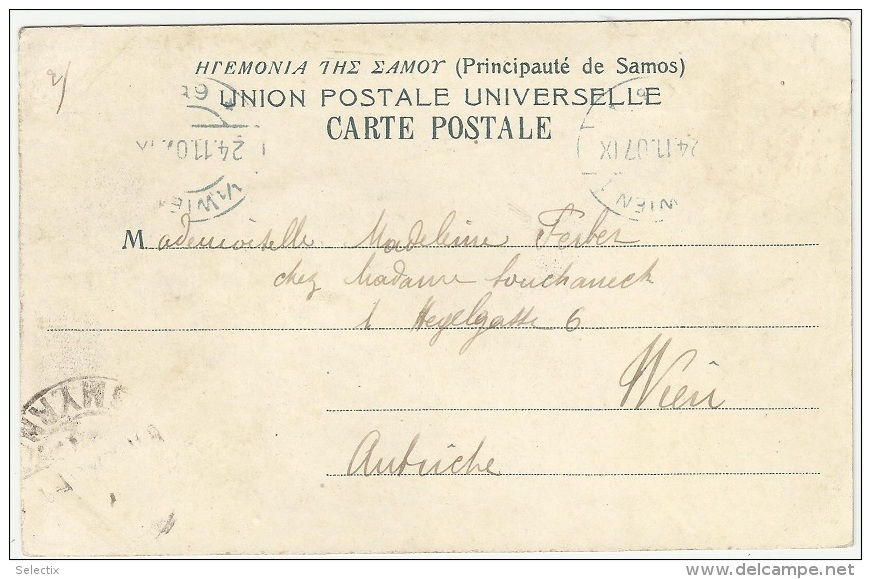 2)
ΗΓΕΜΟΝΙΑ ΤΗΣ ΣΑΜΟΥ (Principauté de Samos)
UNION POSTALE UNIVERSELLE
CARTE POSTALE
1/1 WIEN
24.11.07 IX
WIEN 1
24.11.07 IX
Mademoiselle Madeleine Ferber
chez Madame Souchaneck
1 Hegelgasse 6
Wien
Autriche
SMYRN
Selectix
www.delcampe.net